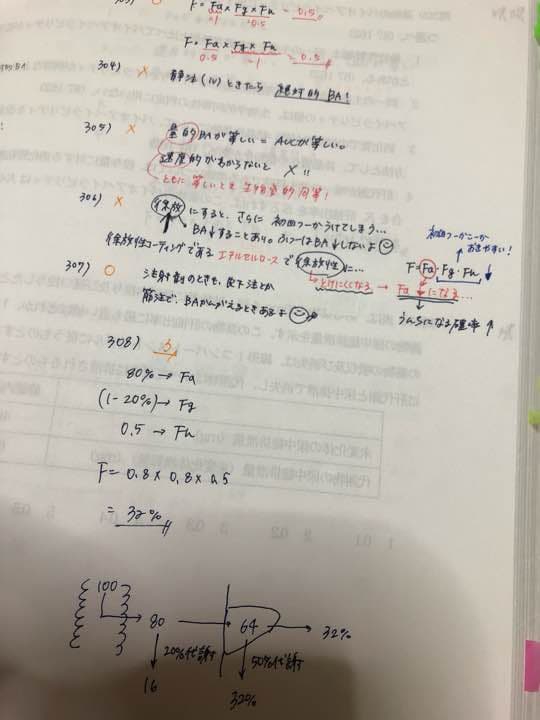 303) ○
F = Fa × Fg × Fh = 0.5
1 0.5
F = Fa × Fg × Fh = 0.5
0.5 1
304) × 静注(iv)ときたら 絶対的 BA!
305) × 量的BAが等しい = AUCが等しい。
速度的がわからないと ×!!
ともに等しいとき生物学的同等!
306) × 徐放にすると、さらに初回つーかうけてしまう…
BA↓することあり。ふつーはBA↓しないよ
徐放性コーティングである エチルセルロースで徐放性に…
とけにくくなる → Fa ↓になる…
うんちになる確率↑
初回つーかこーか
おきやすい!
F = Fa・Fg・Fh ↓
307) ○ 注射剤のときも、皮下注とか
筋注で、BAがかんがえるときあるよ
308) 3
80% → Fa
(1-20%) → Fg
0.5 → Fh
F = 0.8 × 0.8 × 0.5
= 32%
100 → 80 → 64 → 32%
20%代謝
50%代謝
16
32%